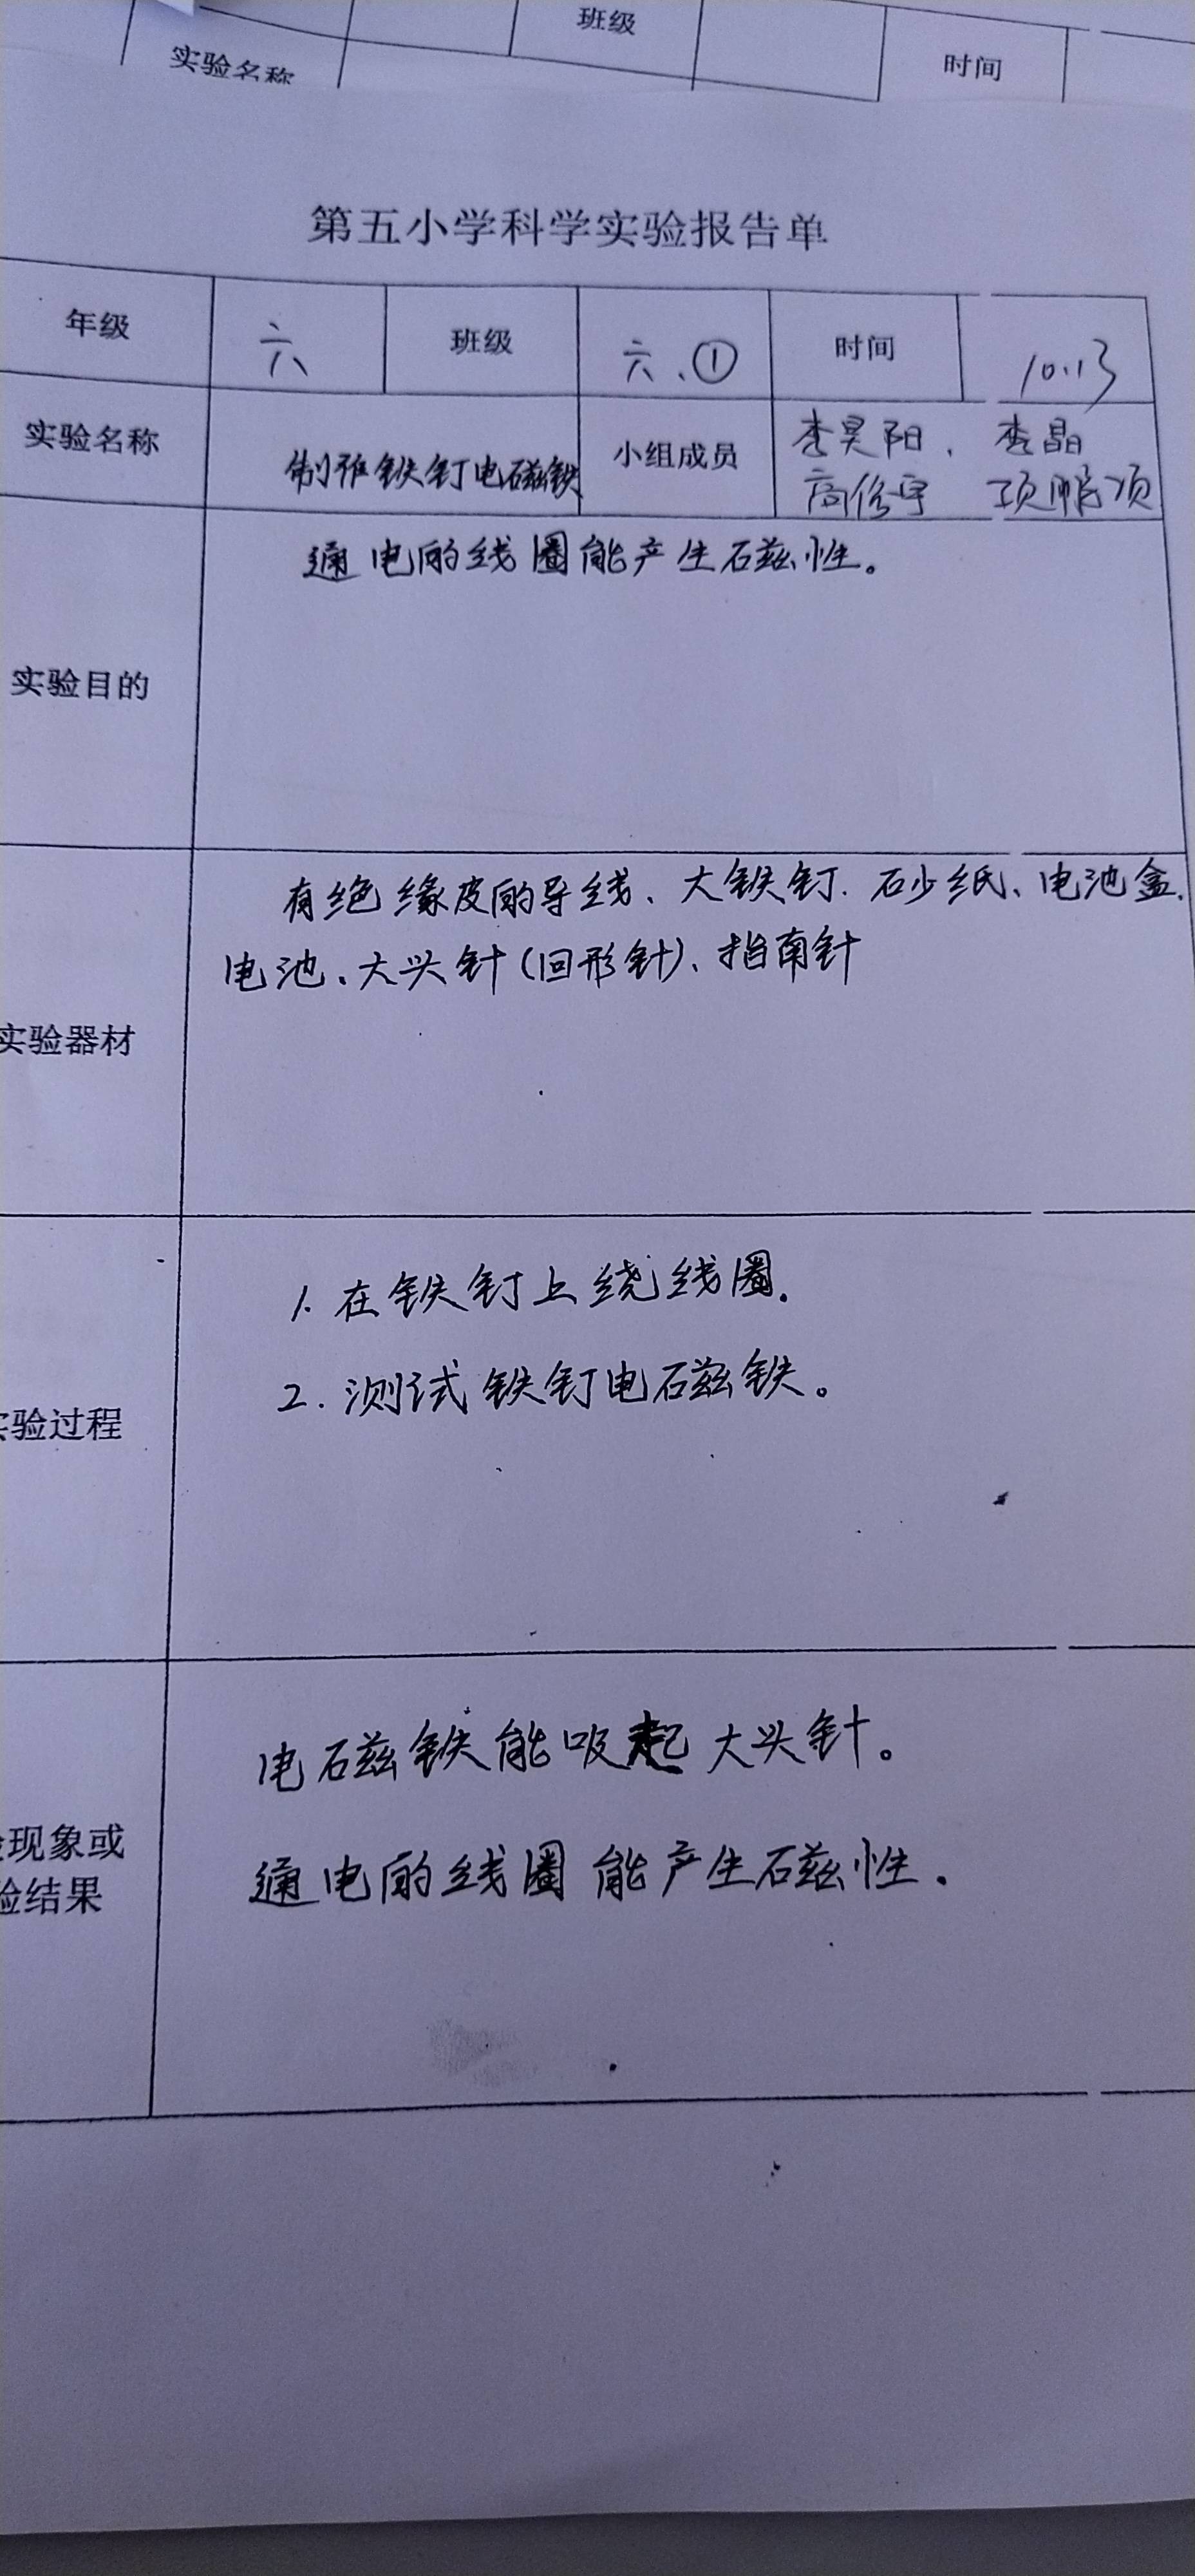 班级
实验名称 时间
第五小学科学实验报告单
年级 六 班级 六、① 时间 10.13
实验名称 制作铁钉电磁铁 小组成员 李昊阳、李晶
高俊宇
通电的线圈能产生磁性。
实验目的
有绝缘皮的导线、大铁钉、砂纸、电池盒、
电池、大头针(回形针)、指南针
实验器材
1.在铁钉上绕线圈.
2.测试铁钉电磁铁。
验过程
电磁铁能吸起大头针。
现象或
验结果
通电的线圈能产生磁性.